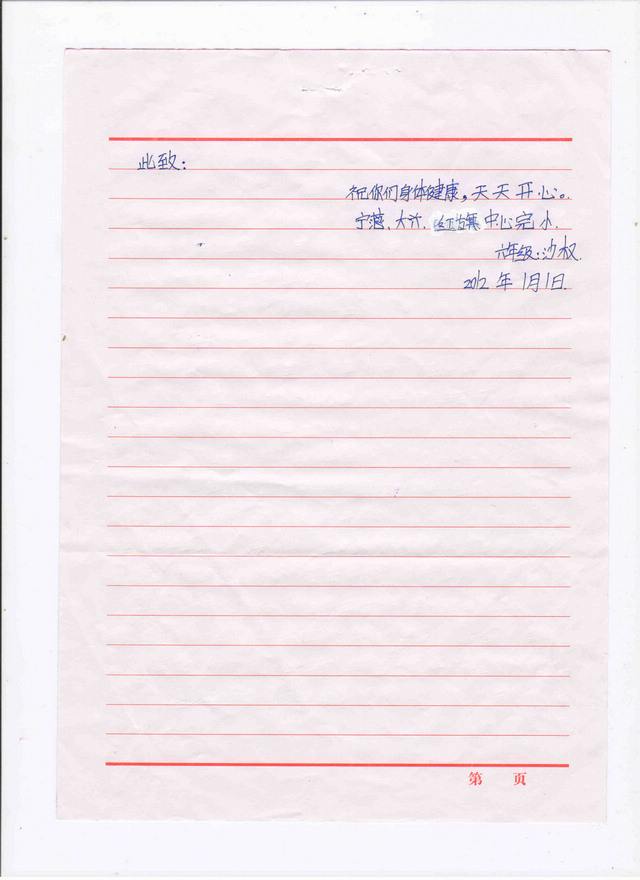 此致：
祝你们身体健康，天天开心。
宁蒗、大兴、红旗中心完小
六年级：沙权
2012年1月1日
第 页